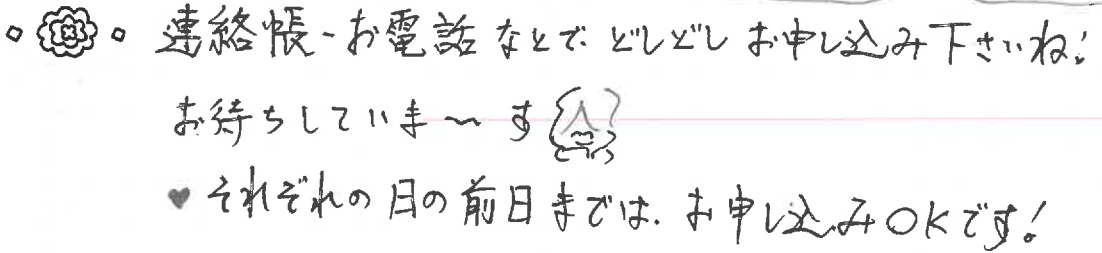 連絡帳・お電話などで どしどし お申し込み下さいね!
お待ちしていま〜す
♥ それぞれの日の前日までは、お申し込みOKです!